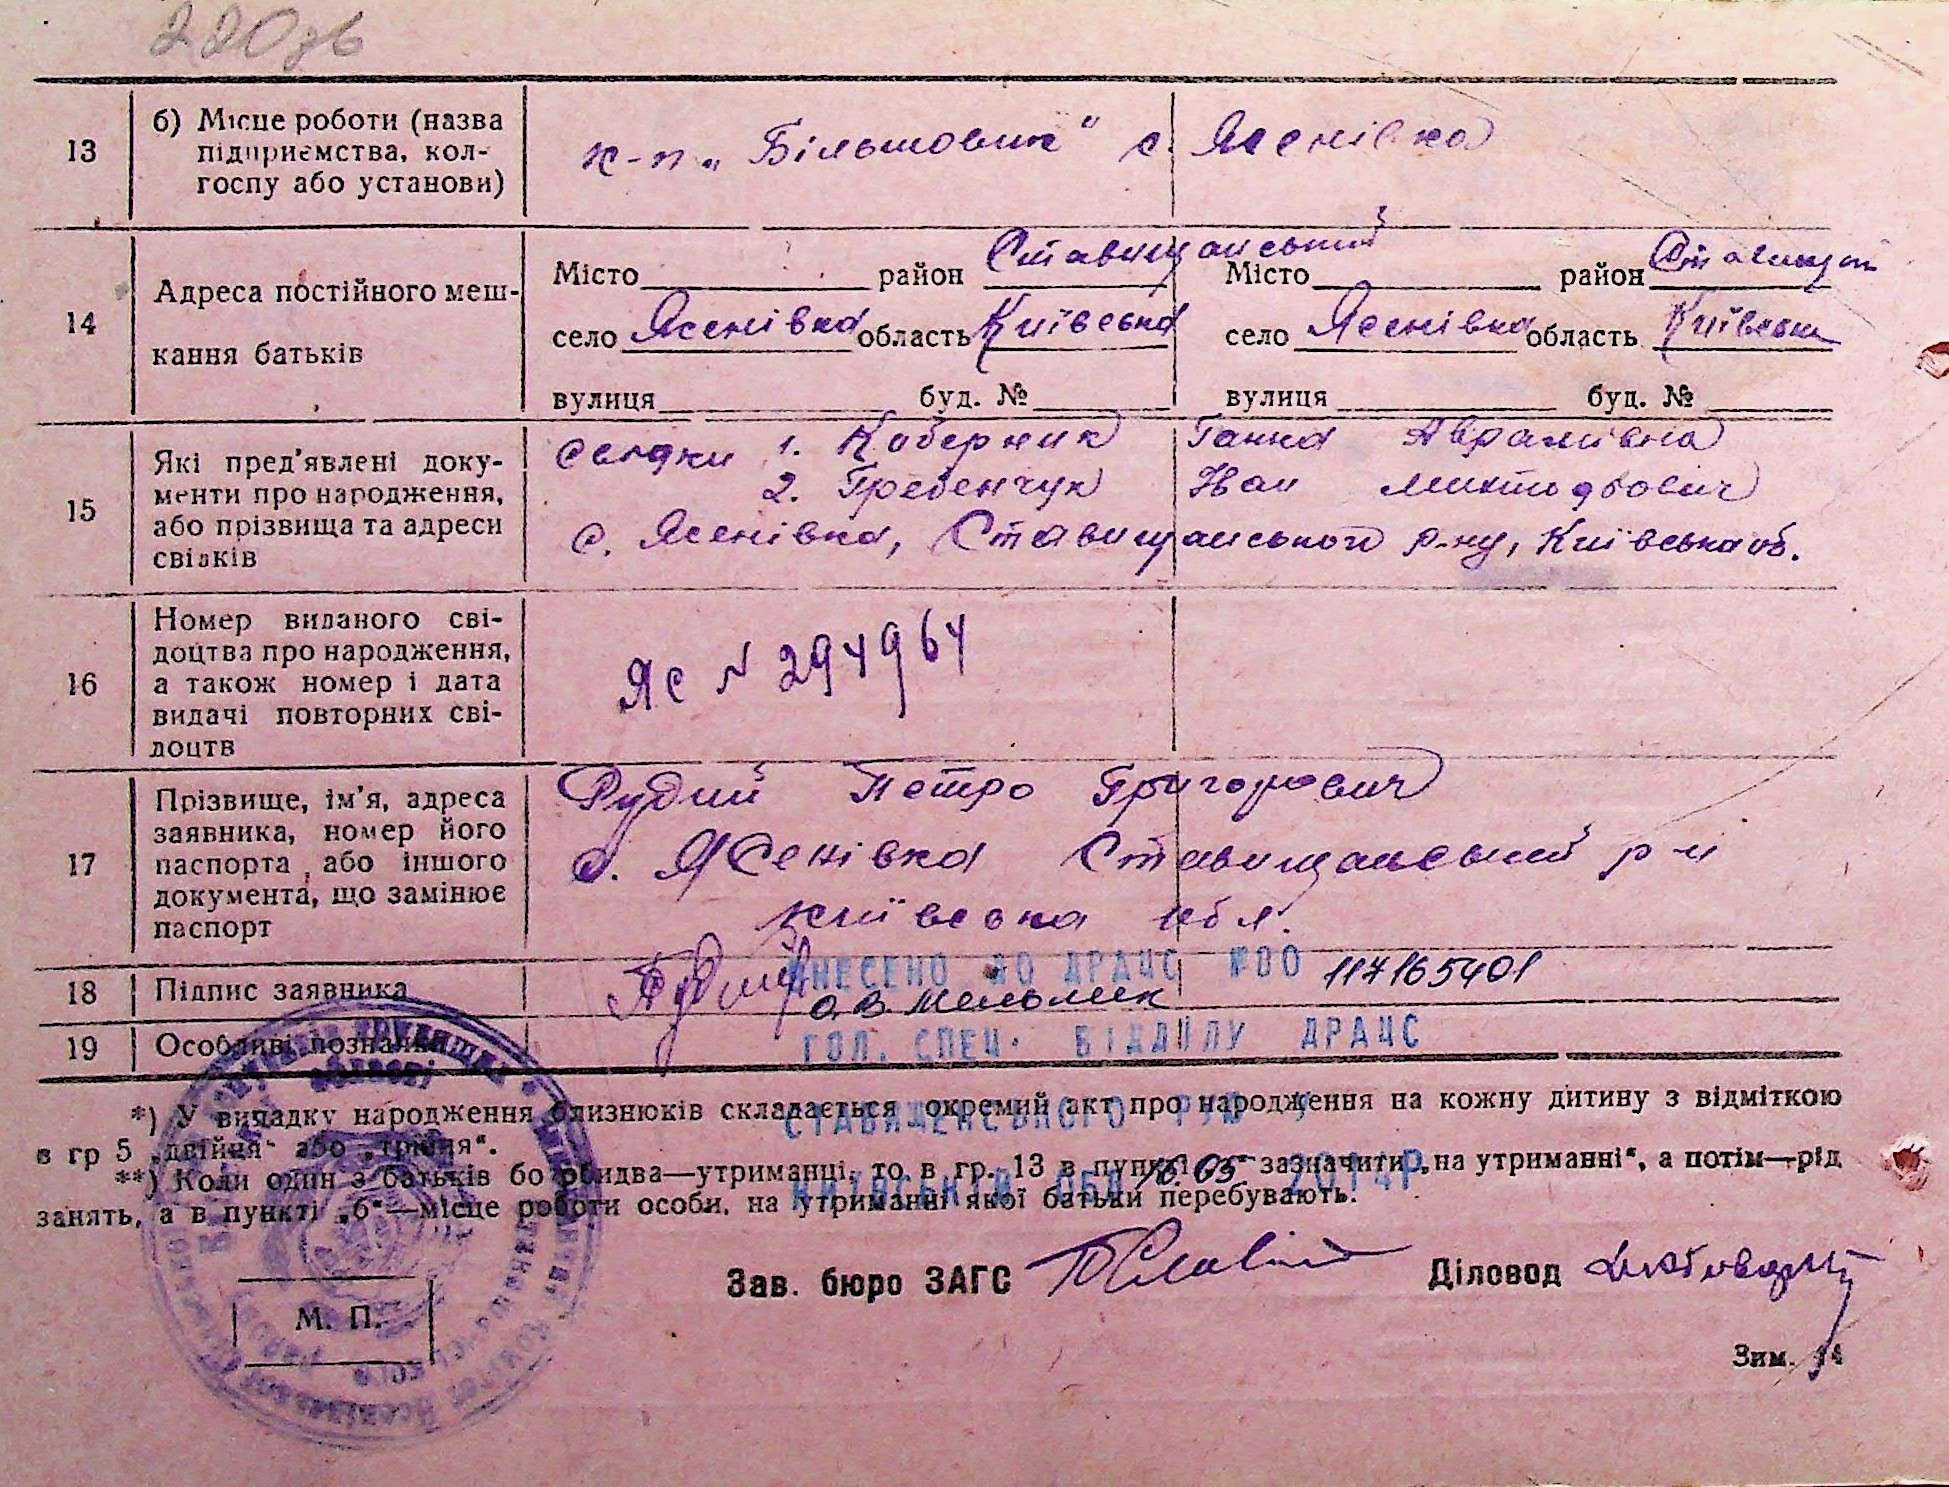 220зв
13 б) Місце роботи (назва підприємства, колгоспу або установи)
к-п „Більшовик" с. Ясенівка
14 Адреса постійного мешкання батьків
Місто район Ставищанський Місто район Ставищан
село Ясенівка область Київська село Ясенівка область Київськ
вулиця буд. № вулиця буд. №
15 Які пред'явлені документи про народження, або прізвища та адреси свідків
свідки 1. Коберник Ганна Аврамівна
2. Гребенчук Іван
с. Ясенівка, Ставищанського р-ну, Київська об.
16 Номер виданого свідоцтва про народження, а також номер і дата видачі повторних свідоцтв
ЯС № 294964
17 Прізвище, ім'я, адреса заявника, номер його паспорта або іншого документа, що замінює паспорт
Рудий Петро Григорович
с. Ясенівка Ставищанський р-н
київська обл.
18 Підпис заявника
ВНЕСЕНО ДО ДРАЦС №00 117165401
О.В. Мельник
19 Особливі позначки
ГОЛ. СПЕЦ. ВІДДІЛУ ДРАЦС
*) У випадку народження близнюків складається окремий акт про народження на кожну дитину з відміткою
СТАВИЩЕНСЬКОГО РУЮ У
в гр 5 „двійня" або „трійня".
**) Коли один з батьків бо обидва—утриманці, то в гр. 13 в пункті зазначити „на утриманні", а потім—рід
КИЇВСЬКІЙ ОБЛ 16.05 2014Р
занять, а в пункті „б"—місце роботи особи, на утриманні якої батьки перебувають.
Зав. бюро ЗАГС Діловод
М. П.
Зим. 14